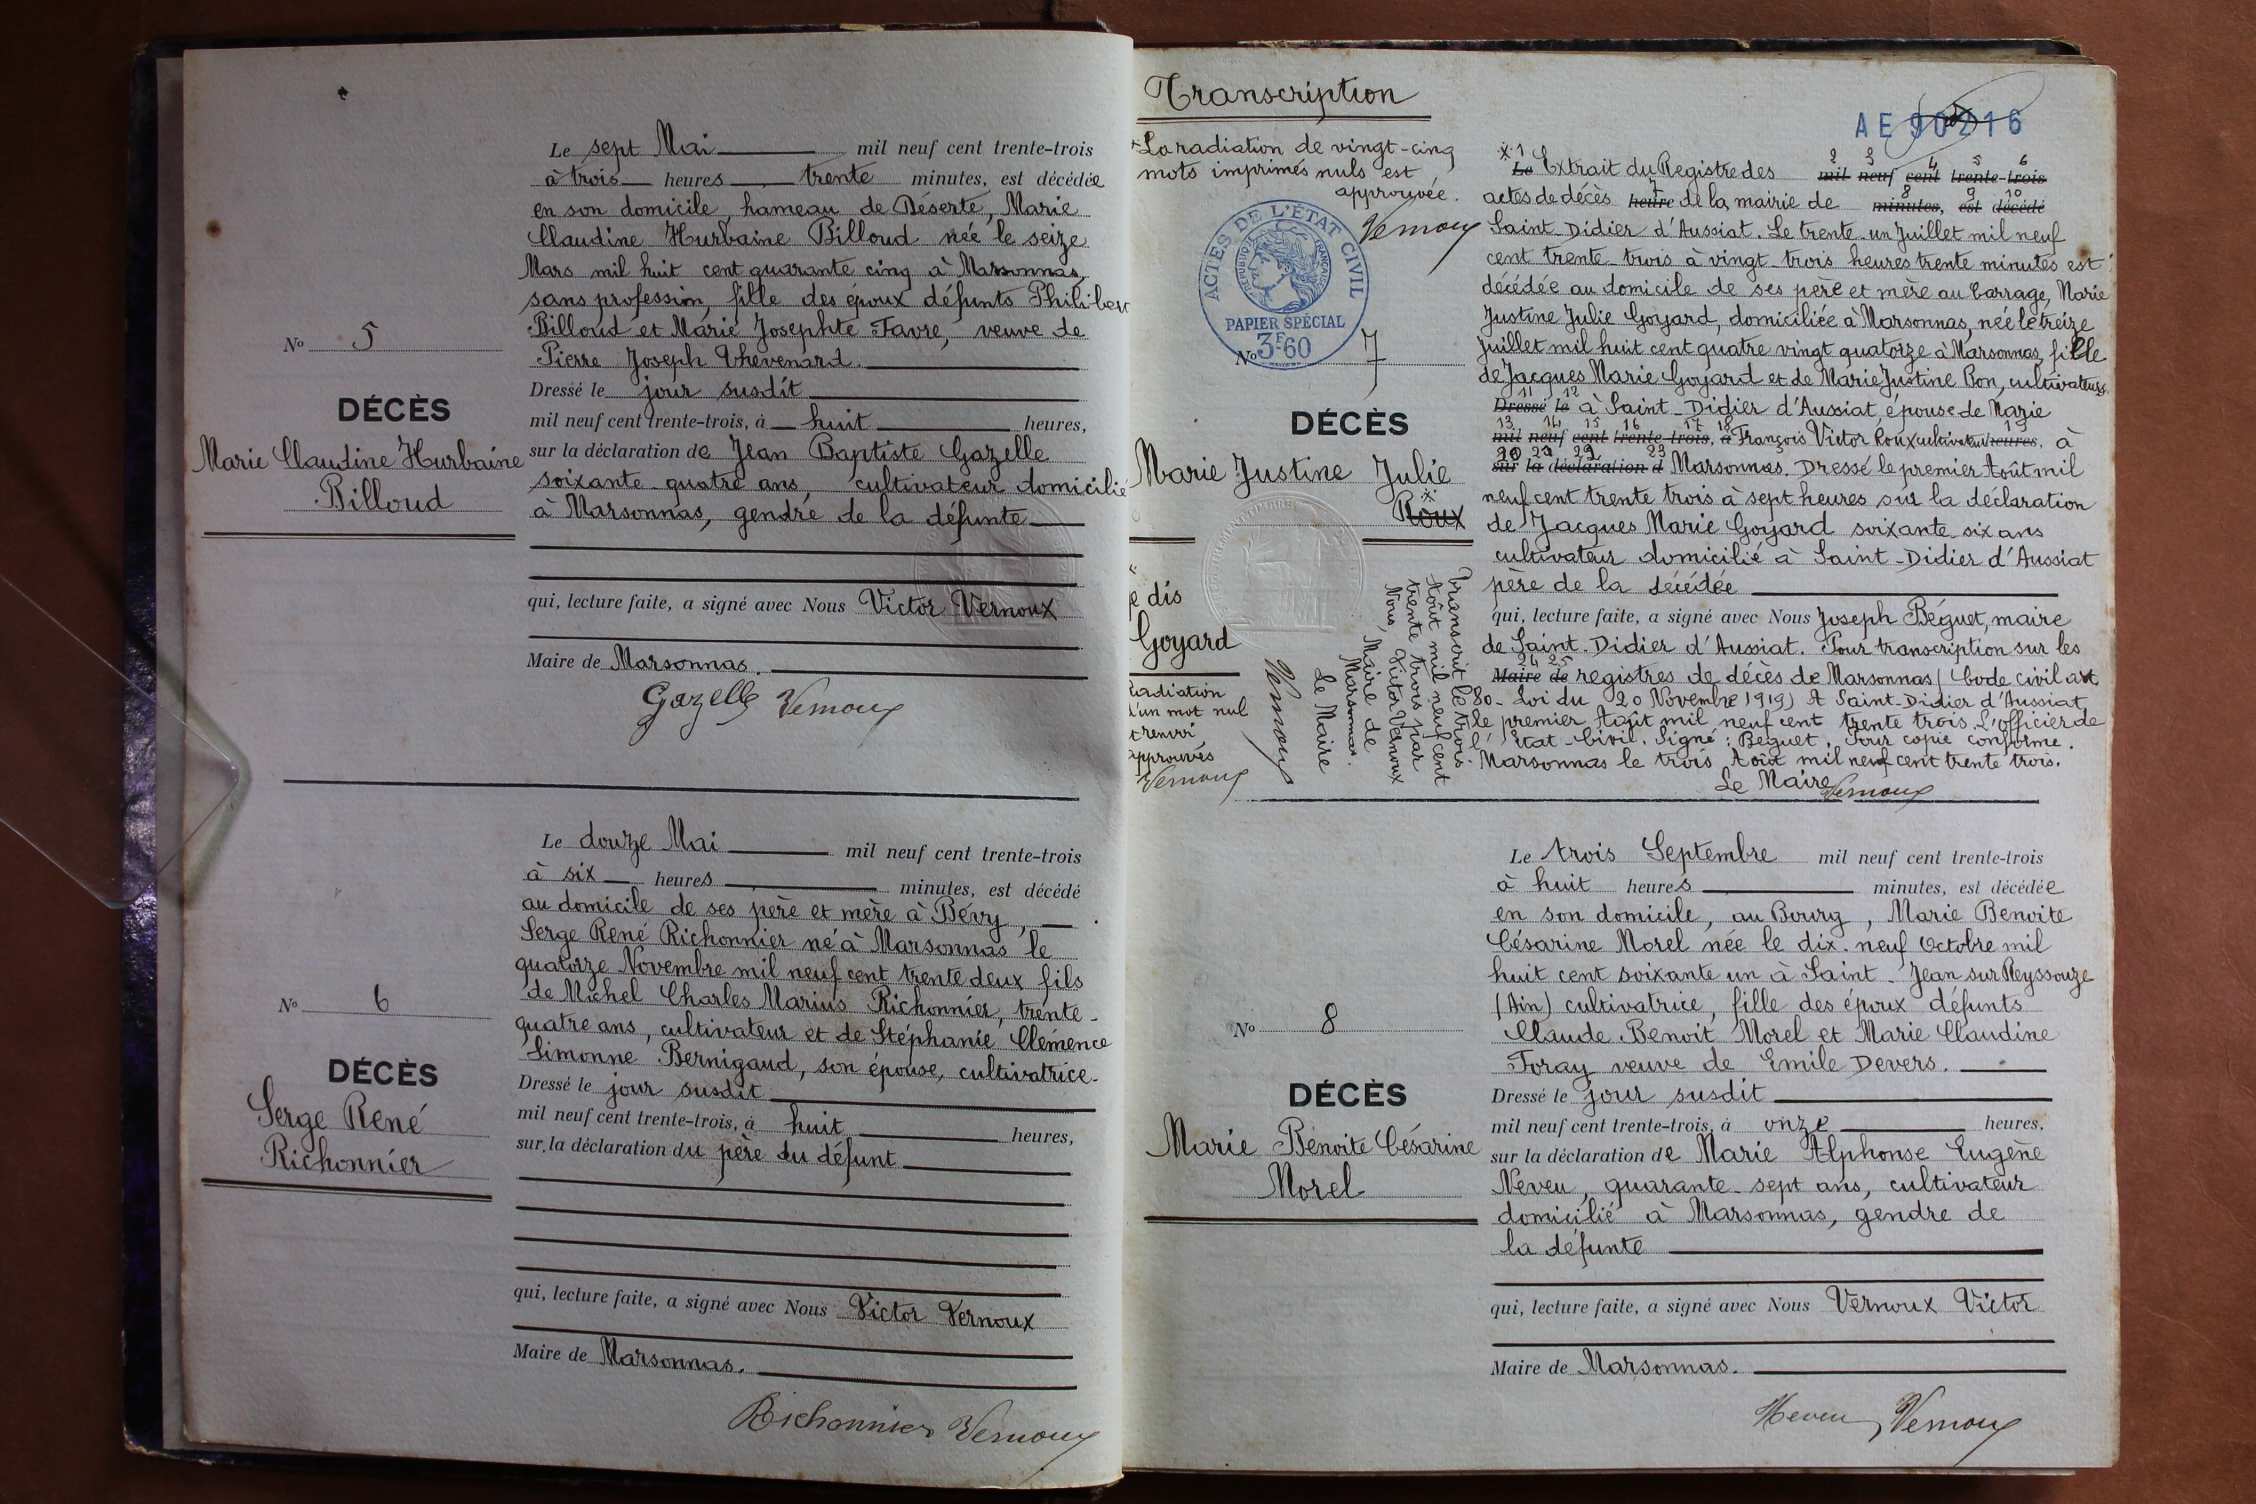 Le sept Mai mil neuf cent trente-trois
à trois heures trente minutes, est décédée
en son domicile, hameau de Déserte, Marie
Claudine Hurbaine Billoud née le seize
Mars mil huit cent quarante cinq à Marsonnas,
sans profession, fille des époux défunts Philiber
Billoud et Marie Josephte Favre, veuve de
Pierre Joseph Thevenard.
Dressé le jour susdit
mil neuf cent trente-trois, à huit heures,
sur la déclaration de Jean Baptiste Gazelle
soixante-quatre ans, cultivateur domicilié
à Marsonnas, gendre de la défunte
qui, lecture faite, a signé avec Nous Victor Vernoux
Maire de Marsonnas.
Gazelle Vernoux
No 5
DÉCÈS
Marie Claudine Hurbaine
Billoud
Le douze Mai mil neuf cent trente-trois
à six heures minutes, est décédé
au domicile de ses père et mère à Bévy,
Serge René Richonnier né à Marsonnas le
quatorze Novembre mil neuf cent trente deux fils
de Michel Charles Marius Richonnier, trente-
quatre ans, cultivateur et de Stéphanie Clémence
Simonne Bernigaud, son épouse, cultivatrice.
Dressé le jour susdit
mil neuf cent trente-trois, à huit heures,
sur la déclaration du père du défunt
qui, lecture faite, a signé avec Nous Victor Vernoux
Maire de Marsonnas.
Richonnier Vernoux
No 6
DÉCÈS
Serge René
Richonnier
Transcription
La radiation de vingt-cinq
mots imprimés nuls est
approuvée.
Vernoux
ACTES DE L'ÉTAT CIVIL
RÉPUBLIQUE FRANÇAISE
PAPIER SPÉCIAL
3F60
No 7
DÉCÈS
Marie Justine Julie
Roux
e dis
Goyard
Radiation
d'un mot nul
et renvoi
approuvés
Vernoux
Transcrit le trois
Août mil neuf cent
trente trois par
Nous, Victor Vernoux
Maire de
Marsonnas.
Le Maire
Vernoux
AE 90216
1 2 3 4 5 6
Le Extrait du Registre des mil neuf cent trente-trois
7 8 9 10
actes de décès heure de la mairie de minutes, est décédé
Saint-Didier d'Aussiat. Le trente-un Juillet mil neuf
cent trente-trois à vingt-trois heures trente minutes est
décédée au domicile de ses père et mère au Carrage, Marie
Justine Julie Goyard, domiciliée à Marsonnas, née le treize
Juillet mil huit cent quatre vingt quatorze à Marsonnas, fille
de Jacques Marie Goyard et de Marie Justine Bon, cultivateurs
11 12
Dressé le à Saint-Didier d'Aussiat, épouse de Marie
13 14 15 16 17 18 19
mil neuf cent trente-trois, à François Victor Roux cultivateur heures, à
20 21 22 23
sur la déclaration d Marsonnas. Dressé le premier Août mil
neuf cent trente trois à sept heures sur la déclaration
de Jacques Marie Goyard soixante-six ans
cultivateur domicilié à Saint-Didier d'Aussiat
père de la décédée
qui, lecture faite, a signé avec Nous Joseph Béguet, maire
de Saint-Didier d'Aussiat. Pour transcription sur les
24 25
Maire de registres de décès de Marsonnas (Code civil art.
80-Loi du 20 Novembre 1919) A Saint-Didier d'Aussiat,
le premier Août mil neuf cent trente trois. L'officier de
l'Etat-Civil. Signé : Béguet. Pour copie conforme.
Marsonnas le trois Août mil neuf cent trente trois.
Le Maire Vernoux
Le trois Septembre mil neuf cent trente-trois
à huit heures minutes, est décédée
en son domicile, au Bourg, Marie Benoite
Césarine Morel née le dix-neuf Octobre mil
huit cent soixante un à Saint-Jean sur Reyssouze
(Ain) cultivatrice, fille des époux défunts
Claude Benoit Morel et Marie Claudine
Foray veuve de Emile Devers.
Dressé le jour susdit
mil neuf cent trente-trois, à onze heures,
sur la déclaration de Marie Alphonse Eugène
Neveu, quarante-sept ans, cultivateur
domicilié à Marsonnas, gendre de
la défunte
qui, lecture faite, a signé avec Nous Vernoux Victor
Maire de Marsonnas.
Neveu Vernoux
No 8
DÉCÈS
Marie Benoite Césarine
Morel